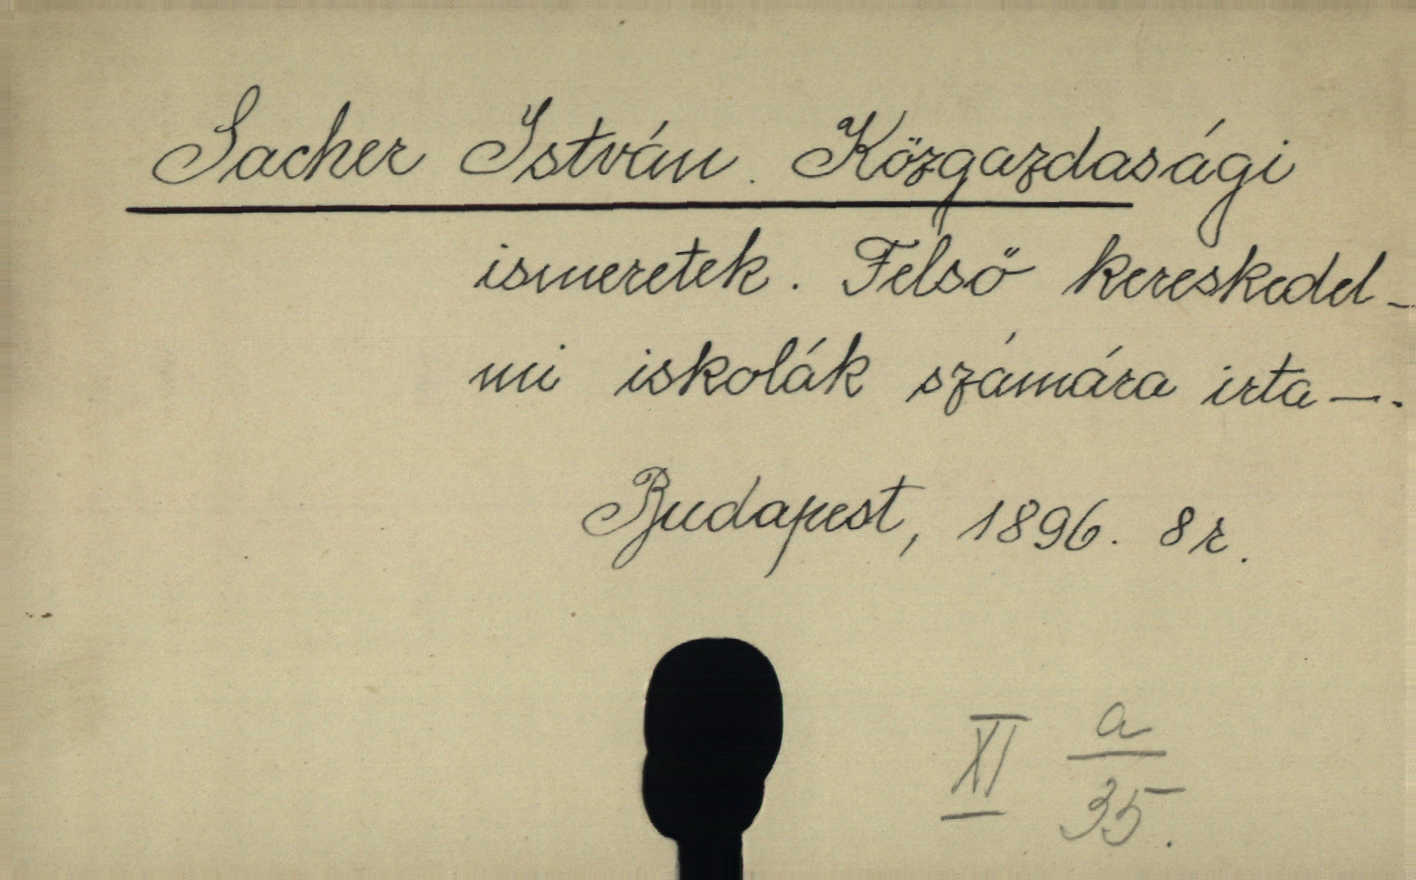 Sacher István. Közgazdasági
ismeretek. Felső kereskedel-
mi iskolák számára irta —.
Budapest, 1896. 8 r.
XI a
35.